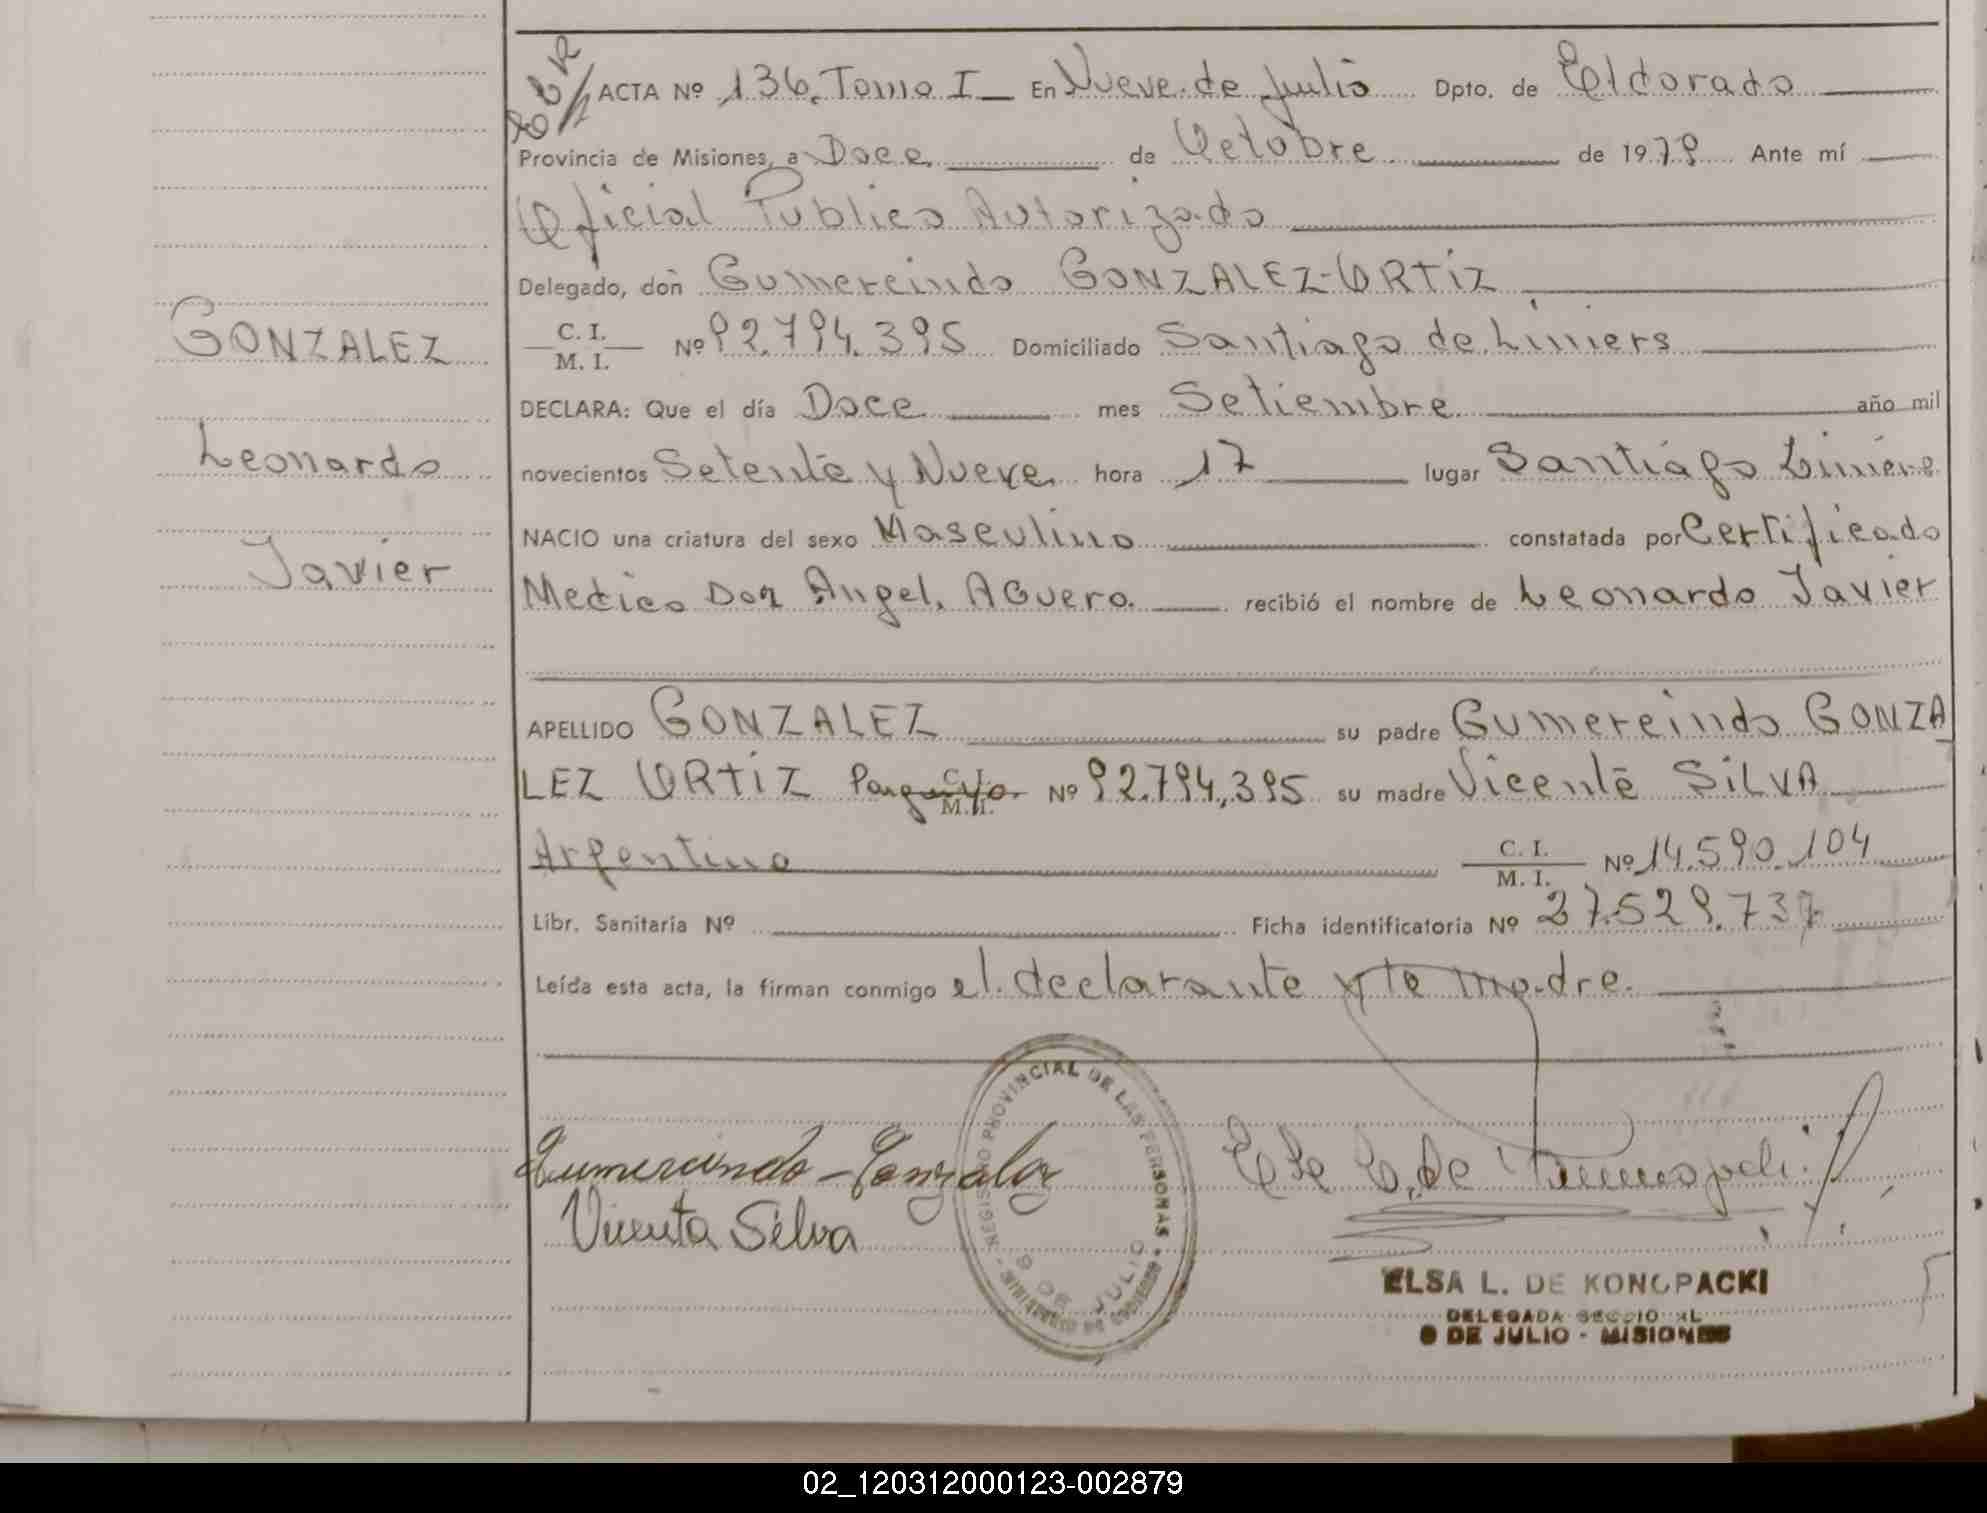 ACTA Nº 136, Tomo I En Nueve de Julio Dpto. de Eldorado
Provincia de Misiones, a Doce de Octubre de 1979 Ante mí
Oficial Publico Autorizado
Delegado, don Gumercindo GONZALEZ-ORTIZ
GONZALEZ
C. I.
M. I. Nº 92.794.395 Domiciliado Santiago de Liniers
DECLARA: Que el día Doce mes Setiembre año mil
Leonardo
novecientos Setenta y Nueve hora 17 lugar Santiago Liniers
NACIO una criatura del sexo Masculino constatada por Certificado
Javier
Medico Don Angel, AGuero. recibió el nombre de Leonardo Javier
APELLIDO GONZALEZ su padre Gumercindo GONZA
LEZ ORTIZ Paraguayo C. I. M. I. Nº 92.794,395 su madre Vicenta SILVA
Argentina C. I.
M. I. Nº 14.590.104
Libr. Sanitaria Nº Ficha identificatoria Nº 27.529.737
Leída esta acta, la firman conmigo el declarante y la madre.
REGISTRO PROVINCIAL DE LAS PERSONAS
MINISTERIO DE GOBIERNO
9 DE JULIO
Gumercindo - Gonzalez
Vicenta Silva
ELSA L. DE KONOPACKI
DELEGADA SECCIONAL
9 DE JULIO - MISIONES
02_120312000123-002879